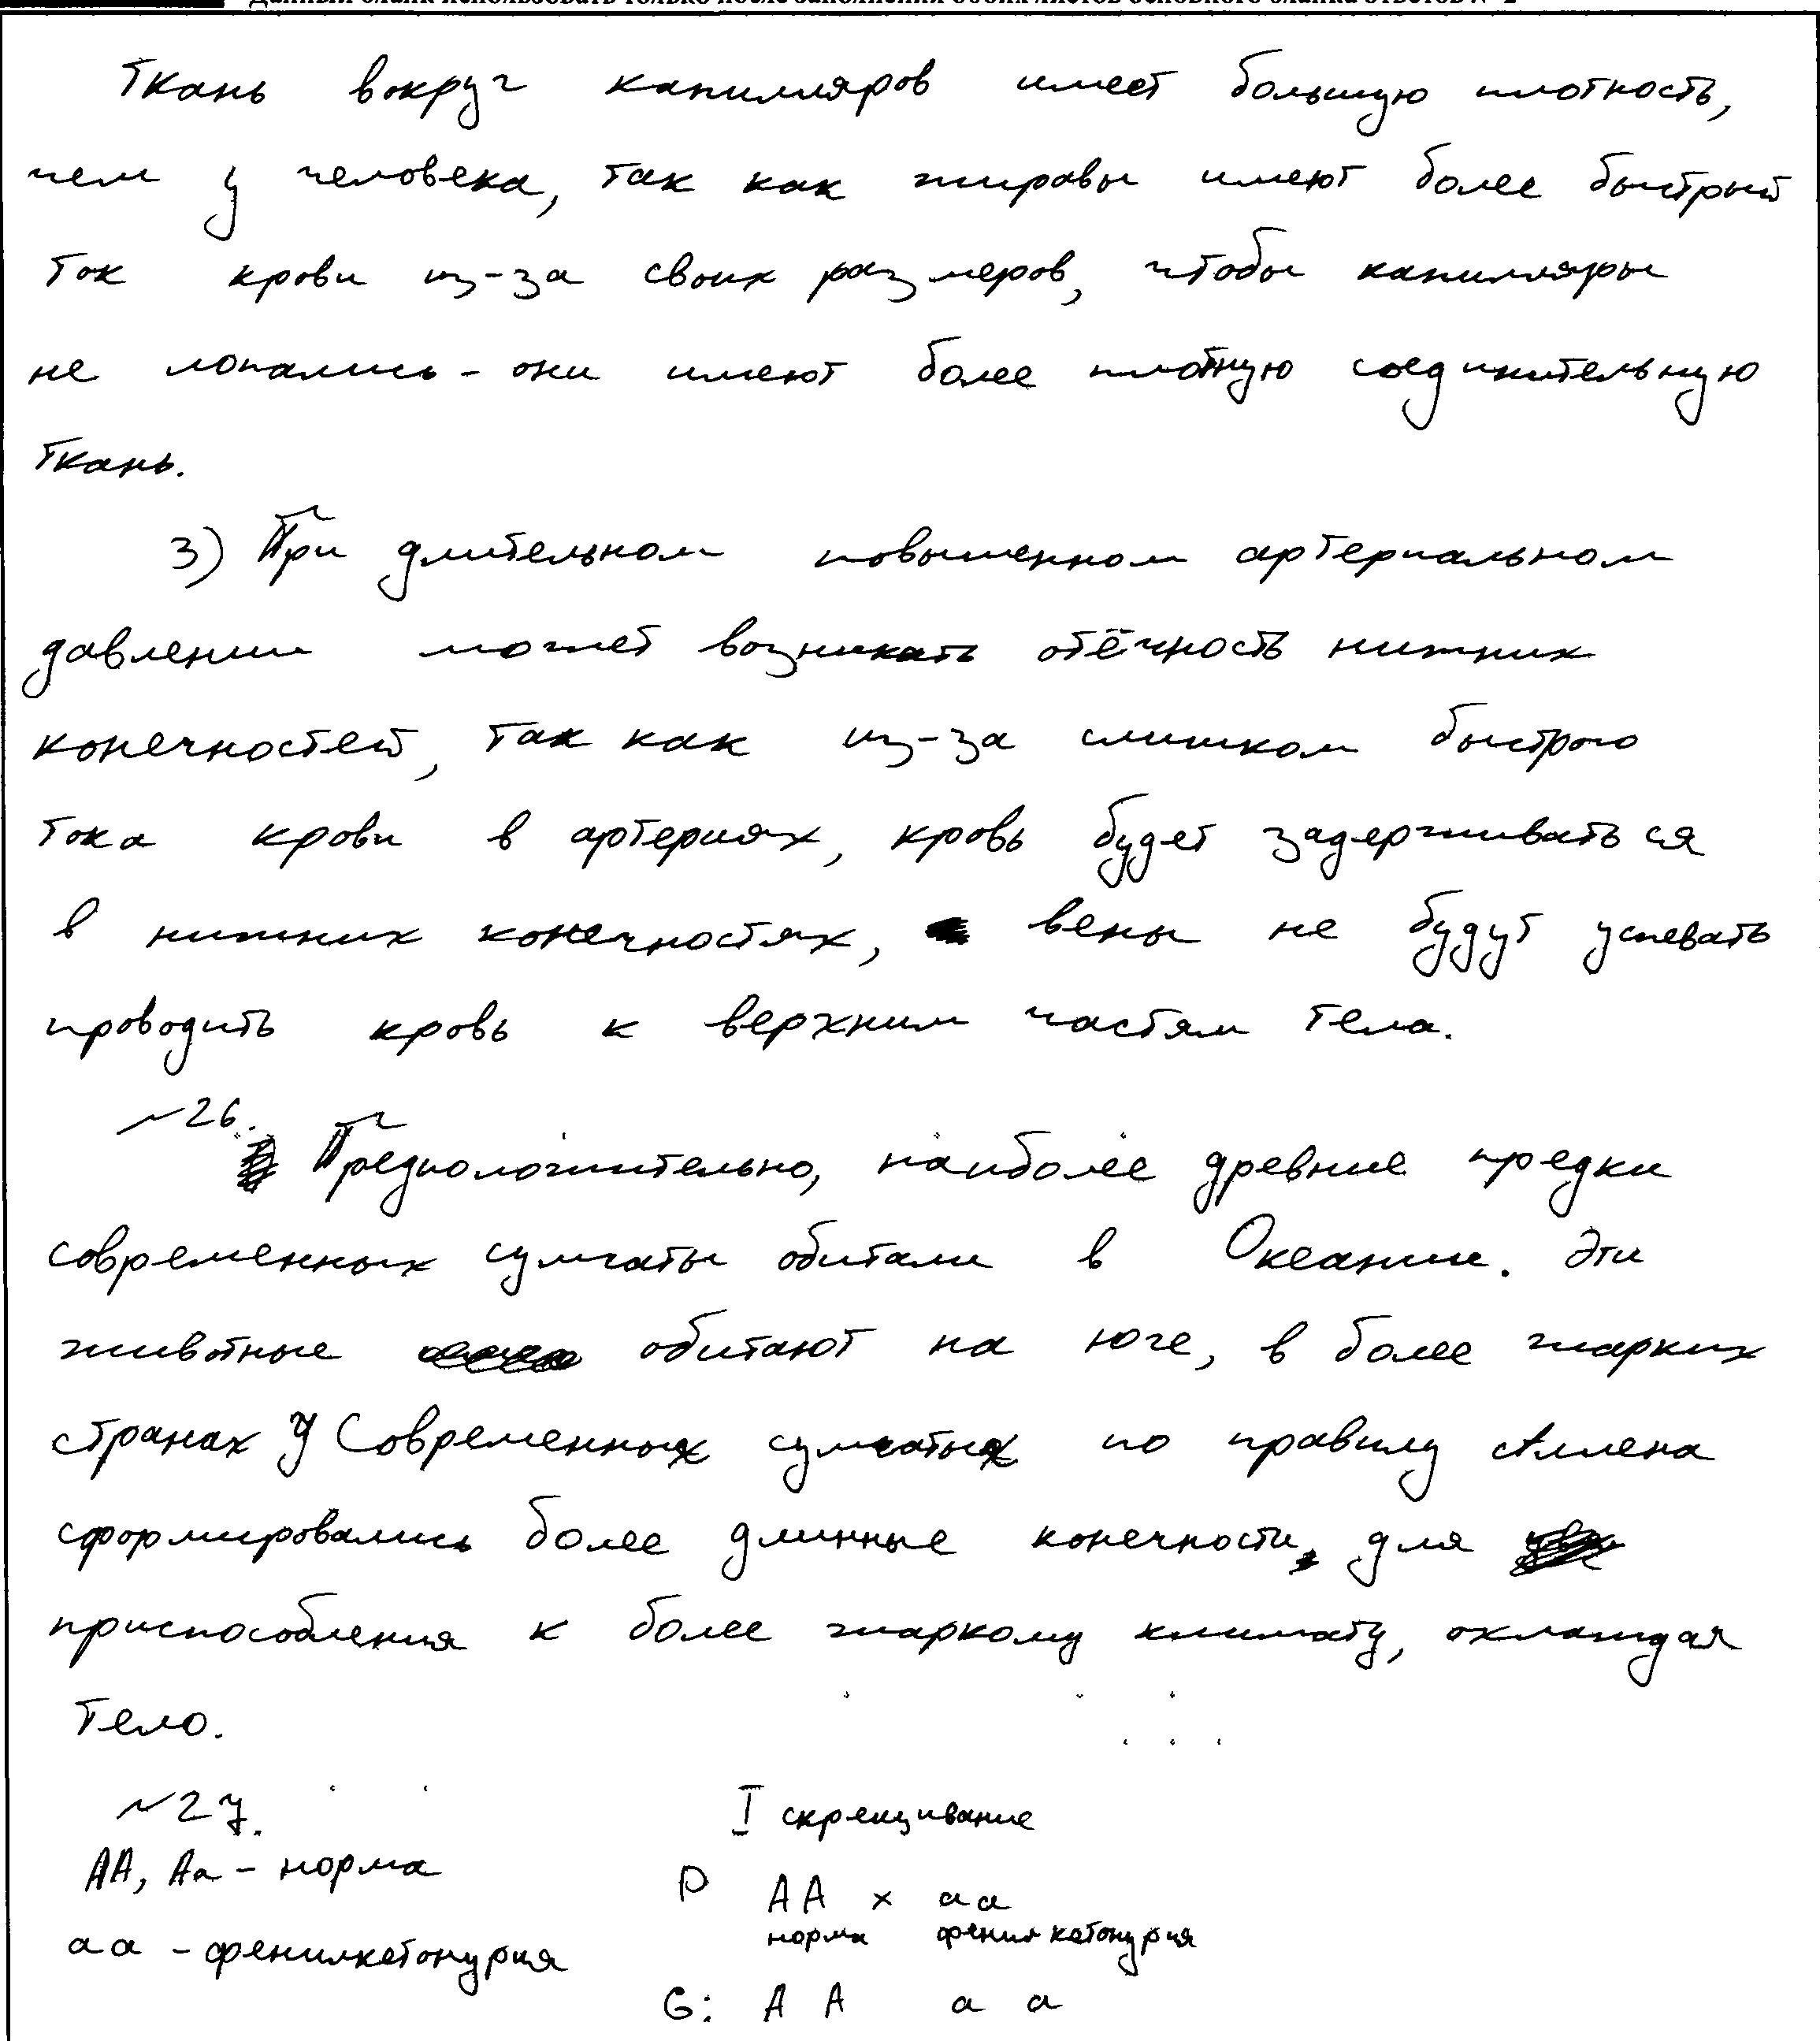 Данный бланк использовать только после заполнения обоих листов основного бланка ответов № 2
Ткань вокруг капилляров имеет большую плотность,
чем у человека, так как жирафы имеют более быстрый
ток крови из-за своих размеров, чтобы капилляры
не лопались - они имеют более плотную соединительную
ткань.
3) При длительном повышенном артериальном
давлении может возникать отёчность нижних
конечностей, так как из-за слишком быстрого
тока крови в артериях, кровь будет задерживаться
в нижних конечностях, вены не будут успевать
проводить кровь к верхним частям тела.
~26.
Предположительно, наиболее древние предки
современных сумчаты обитали в Океании. Эти
животные обитают на юге, в более жарких
странах У Современных сумчатых по правилу Аллена
сформировались более длинные конечности, для
приспособления к более жаркому климату, охлаждая
тело.
~27.
I скрещивание
АА, Аа - норма
P АА х аа
норма фенилкетонурия
аа - фенилкетонурия
G: А А а а